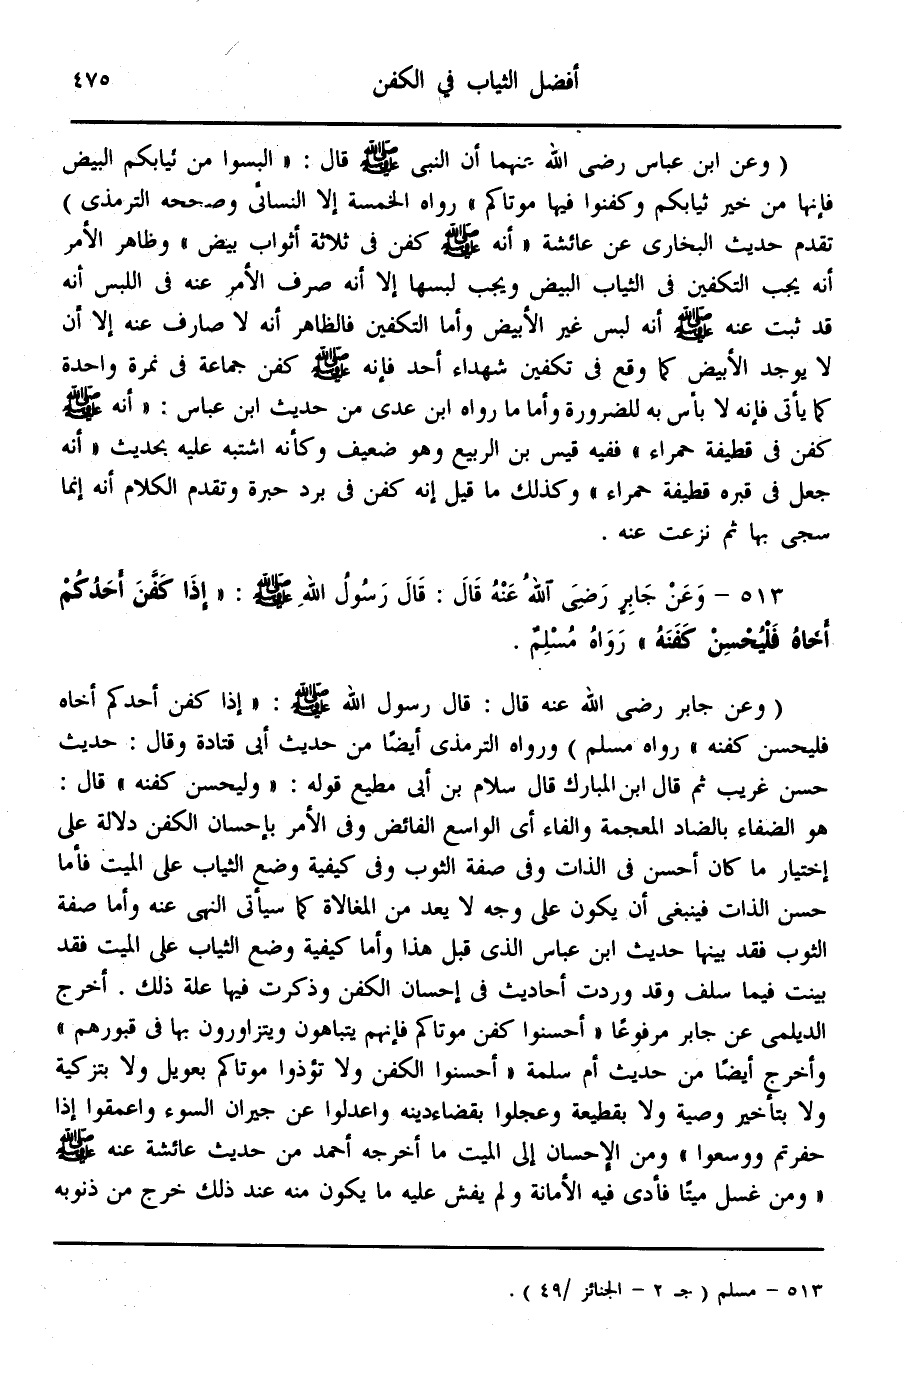 أفضل الثياب في الكفن ٤٧٥
( وعن ابن عباس رضى الله عنهما أن النبى ﷺ قال : « البسوا من ثيابكم البيض
فإنها من خير ثيابكم وكفنوا فيها موتاكم » رواه الخمسة إلا النسائى وصححه الترمذى )
تقدم حديث البخارى عن عائشة « أنه ﷺ كفن فى ثلاثة أثواب بيض » وظاهر الأمر
أنه يجب التكفين فى الثياب البيض ويجب لبسها إلا أنه صرف الأمر عنه فى اللبس أنه
قد ثبت عنه ﷺ أنه لبس غير الأبيض وأما التكفين فالظاهر أنه لا صارف عنه إلا أن
لا يوجد الأبيض كما وقع فى تكفين شهداء أحد فإنه ﷺ كفن جماعة فى نمرة واحدة
كما يأتى فإنه لا بأس به للضرورة وأما ما رواه ابن عدى من حديث ابن عباس : « أنه ﷺ
كفن فى قطيفة حمراء » ففيه قيس بن الربيع وهو ضعيف وكأنه اشتبه عليه بحديث « أنه
جعل فى قبره قطيفة حمراء » وكذلك ما قيل إنه كفن فى برد حبرة وتقدم الكلام أنه إنما
سجى بها ثم نزعت عنه .
٥١٣ - وَعَنْ جَابِرٍ رَضِيَ اللهُ عَنْهُ قَالَ : قَالَ رَسُولُ اللهِ ﷺ : « إِذَا كَفَّنَ أَحَدُكُمْ
أَخَاهُ فَلْيُحْسِنْ كَفَنَهُ » رَوَاهُ مُسْلِمٌ .
( وعن جابر رضى الله عنه قال : قال رسول الله ﷺ : « إذا كفن أحدكم أخاه
فليحسن كفنه » رواه مسلم ) ورواه الترمذى أيضًا من حديث أبى قتادة وقال : حديث
حسن غريب ثم قال ابن المبارك قال سلام بن أبى مطيع قوله : « وليحسن كفنه » قال :
هو الضفاء بالضاد المعجمة والفاء أى الواسع الفائض وفى الأمر بإحسان الكفن دلالة على
إختيار ما كان أحسن فى الذات وفى صفة الثوب وفى كيفية وضع الثياب على الميت فأما
حسن الذات فينبغى أن يكون على وجه لا يعد من المغالاة كما سيأتى النهى عنه وأما صفة
الثوب فقد بينها حديث ابن عباس الذى قبل هذا وأما كيفية وضع الثياب على الميت فقد
بينت فيما سلف وقد وردت أحاديث فى إحسان الكفن وذكرت فيها علة ذلك . أخرج
الديلمى عن جابر مرفوعًا « أحسنوا كفن موتاكم فإنهم يتباهون ويتزاورون بها فى قبورهم »
وأخرج أيضًا من حديث أم سلمة « أحسنوا الكفن ولا تؤذوا موتاكم بعويل ولا بتزكية
ولا بتأخير وصية ولا بقطيعة وعجلوا بقضاءدينه واعدلوا عن جيران السوء واعمقوا إذا
حفرتم ووسعوا » ومن الإحسان إلى الميت ما أخرجه أحمد من حديث عائشة عنه ﷺ
« ومن غسل ميتًا فأدى فيه الأمانة ولم يفش عليه ما يكون منه عند ذلك خرج من ذنوبه
٥١٣ - مسلم ( جـ ٢ - الجنائز /٤٩ ) .